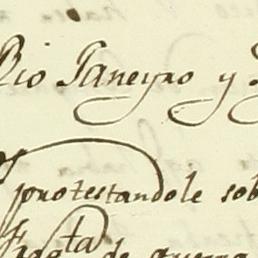 Rio Janeyro y
protestandole sob
de guerra